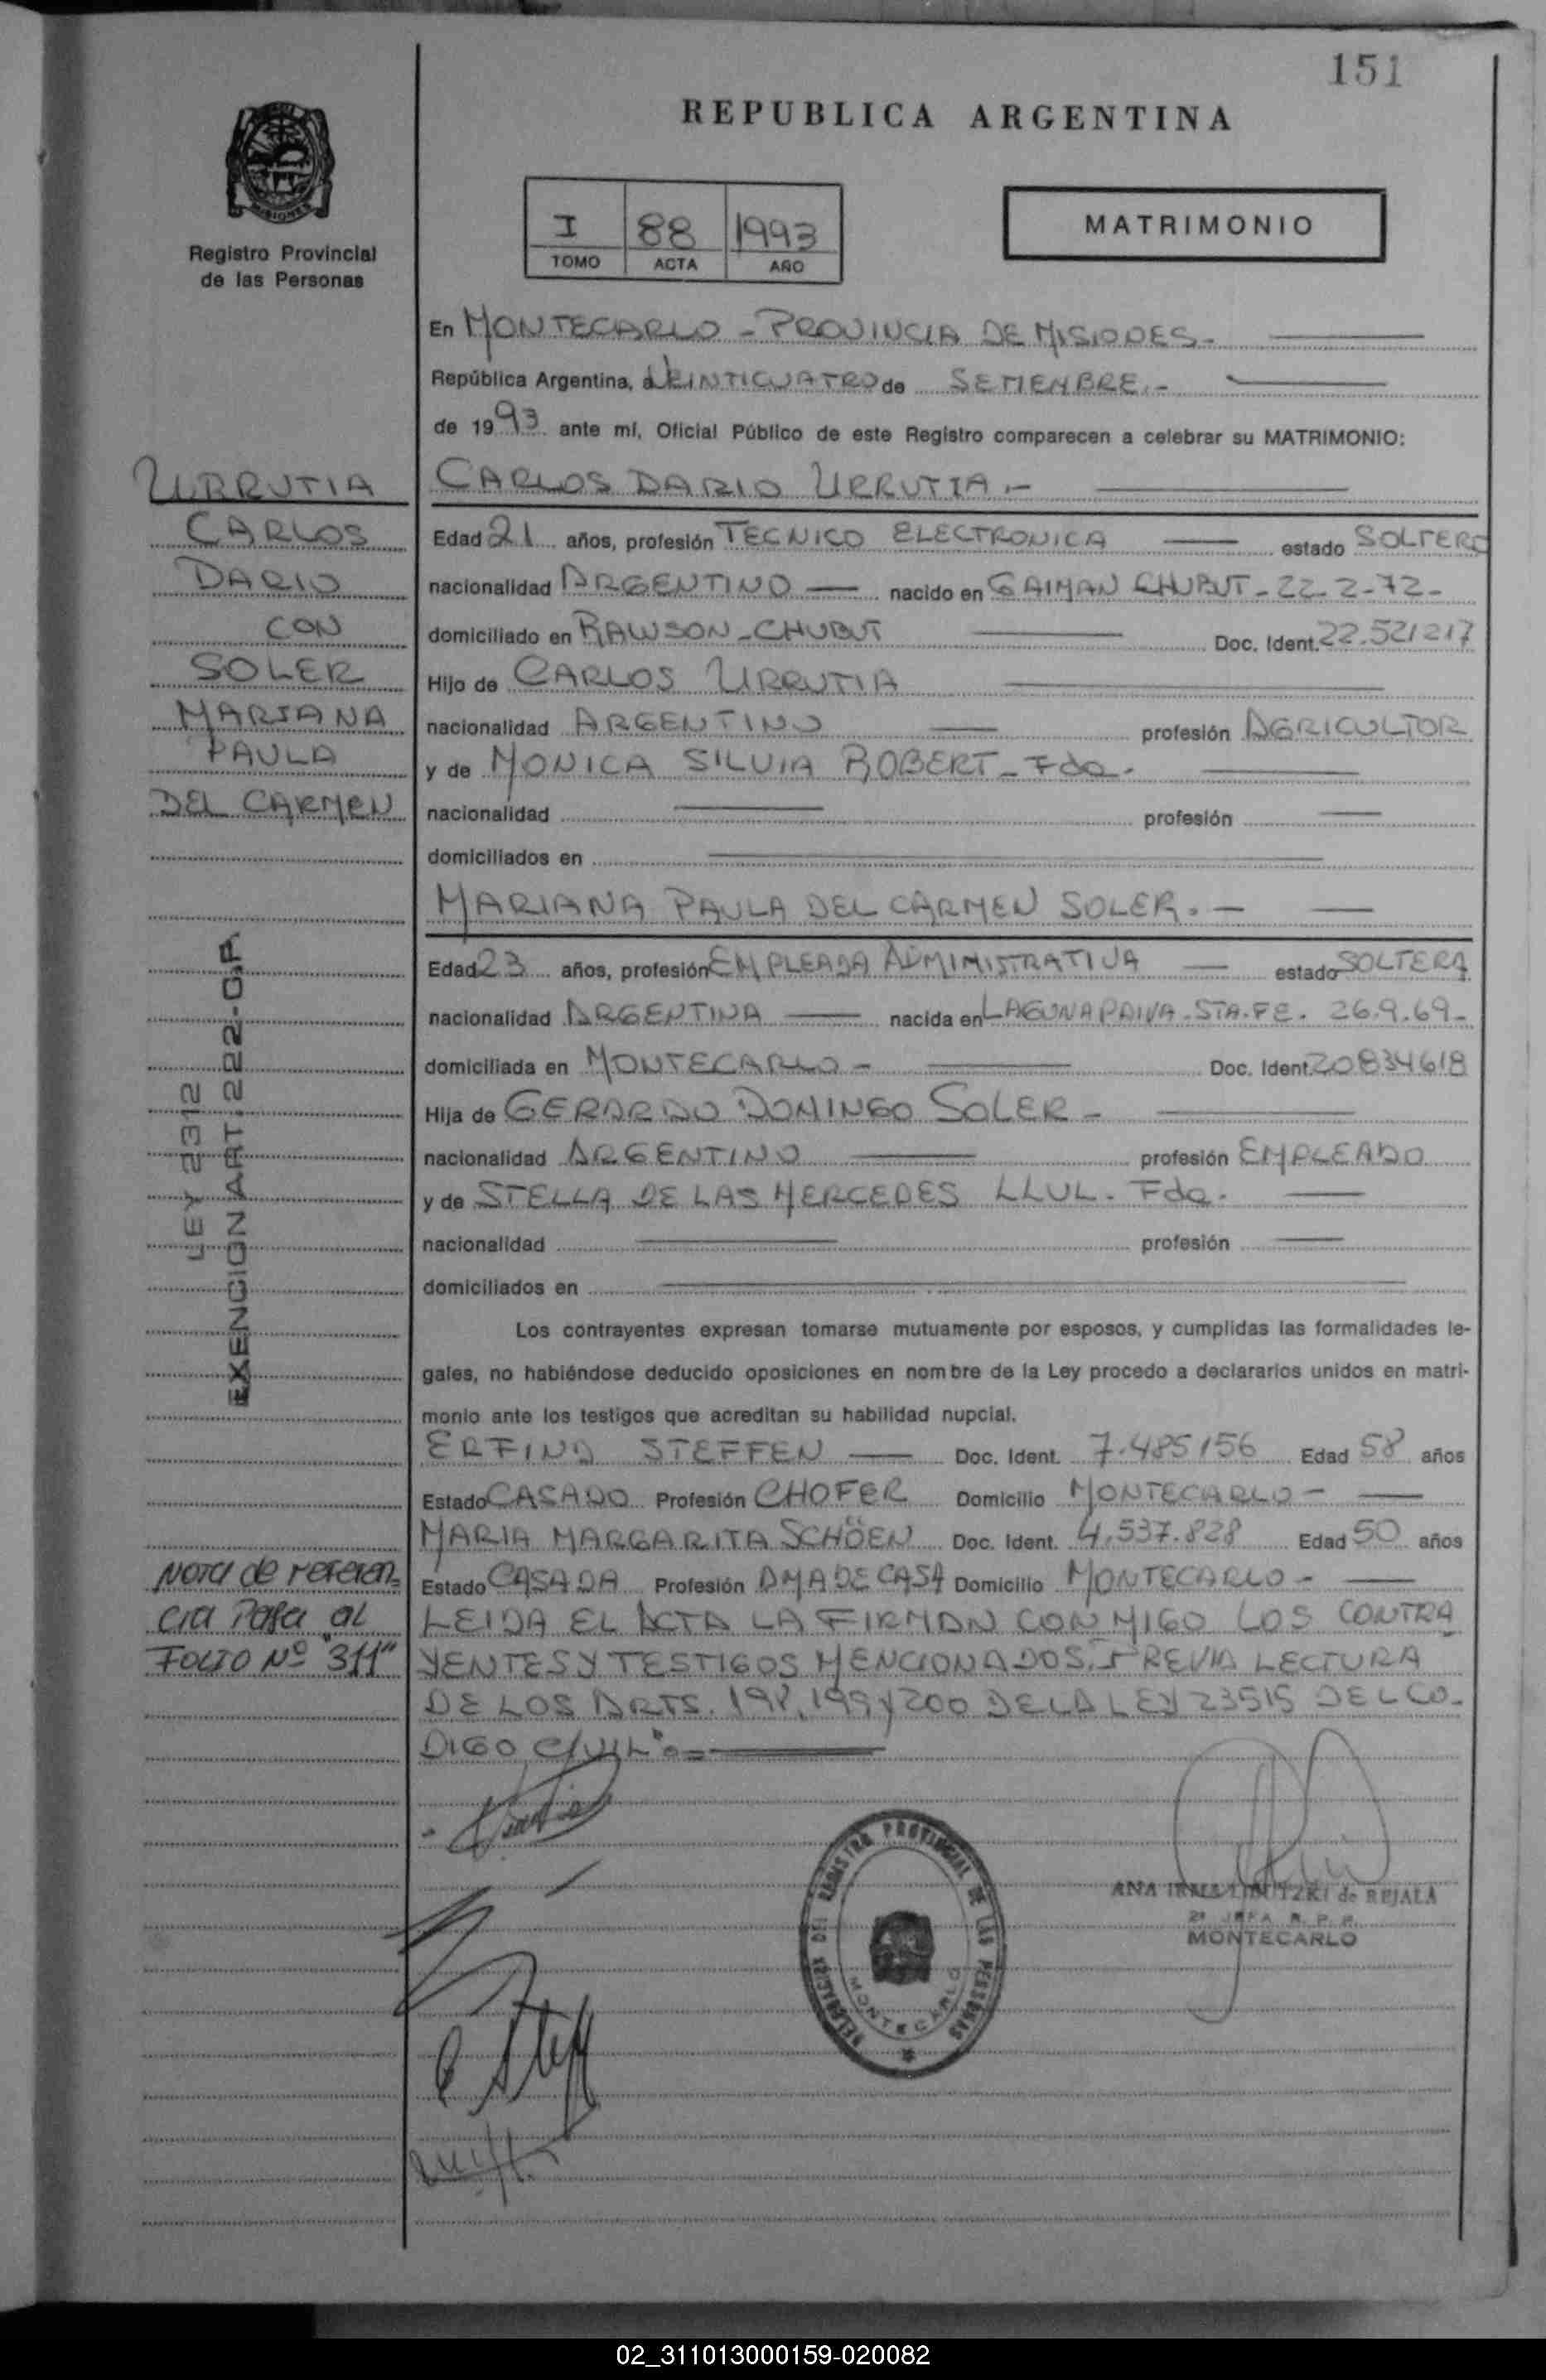 151
REPUBLICA ARGENTINA
MISIONES
Registro Provincial
de las Personas
I 88 1993
TOMO ACTA AÑO
MATRIMONIO
En MONTECARLO - PROVINCIA DE MISIONES.
República Argentina, a VEINTICUATRO de SETIEMBRE.-
de 1993 ante mí, Oficial Público de este Registro comparecen a celebrar su MATRIMONIO:
CARLOS DARIO URRUTIA.-
Edad 21 años, profesión TECNICO ELECTRONICA estado SOLTERO
nacionalidad ARGENTINO nacido en GAIMAN CHUBUT - 22-2-72-
domiciliado en RAWSON-CHUBUT Doc. Ident. 22.521217
Hijo de CARLOS URRUTIA
nacionalidad ARGENTINO profesión AGRICULTOR
y de MONICA SILVIA ROBERT - Fda.
nacionalidad profesión
domiciliados en
MARIANA PAULA DEL CARMEN SOLER.-
Edad 23 años, profesión EMPLEADA ADMIMISTRATIVA estado SOLTERA
nacionalidad ARGENTINA nacida en LAGUNA PAIVA - STA. FE. 26.9.69-
domiciliada en MONTECARLO - Doc. Ident. 20834618
Hija de GERARDO DOMINGO SOLER -
nacionalidad ARGENTINO profesión EMPLEADO
y de STELLA DE LAS MERCEDES LLUL. Fda.
nacionalidad profesión
domiciliados en
Los contrayentes expresan tomarse mutuamente por esposos, y cumplidas las formalidades le-
gales, no habiéndose deducido oposiciones en nombre de la Ley procedo a declararlos unidos en matri-
monio ante los testigos que acreditan su habilidad nupcial.
ERFINO STEFFEN Doc. Ident. 7.485156 Edad 58 años
Estado CASADO Profesión CHOFER Domicilio MONTECARLO -
MARIA MARGARITA SCHÖEN Doc. Ident. 4.537.828 Edad 50 años
Estado CASADA Profesión AMA DE CASA Domicilio MONTECARLO -
LEIDA EL ACTA LA FIRMAN CONMIGO LOS CONTRA
YENTES Y TESTIGOS MENCIONADOS. PREVIA LECTURA
DE LOS ARTS. 198, 199 Y 200 DE LA LEY 23515 DEL CO-
DIGO CIVIL
URRUTIA
CARLOS
DARIO
CON
SOLER
MARIANA
PAULA
DEL CARMEN
LEY 2312
EXENCION ART. 222-C.P.
Nota de referen=
cia Pasa al
FOLIO Nº "311"
DELEGACION DEL REGISTRO PROVINCIAL DE LAS PERSONAS
MONTECARLO
ANA IRMA de REJALA
2ª JEFA R. P. P.
MONTECARLO
02_311013000159-020082